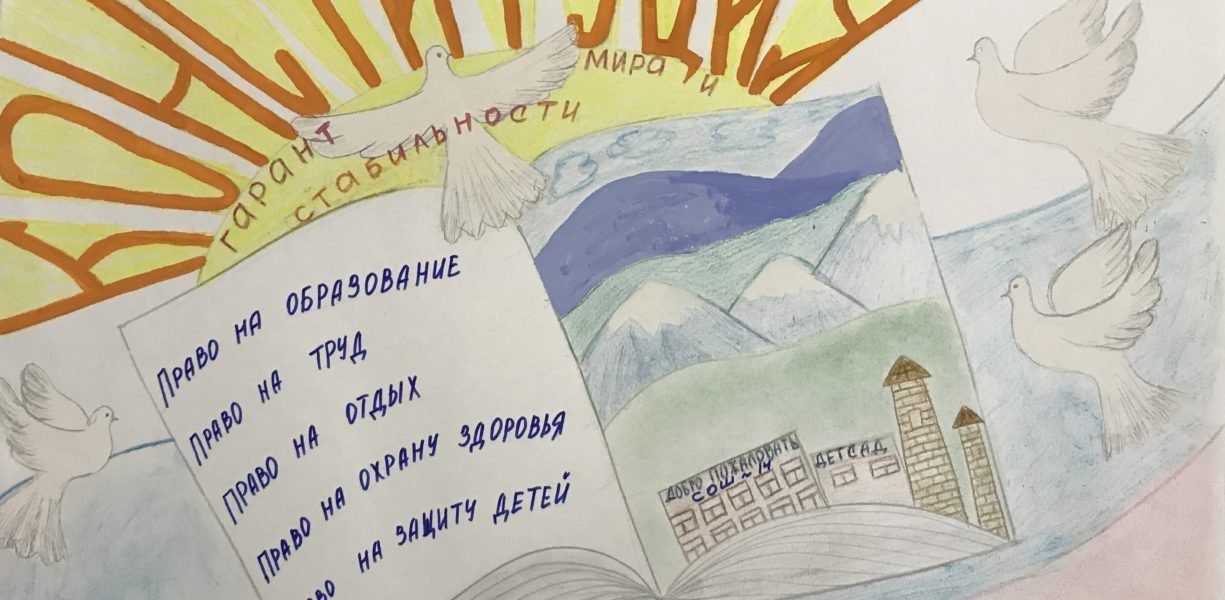 КОНСТИТУЦИЯ
гарант мира и
стабильности
ПРАВО НА ОБРАЗОВАНИЕ
ПРАВО НА ТРУД
ПРАВО НА ОТДЫХ
ПРАВО НА ОХРАНУ ЗДОРОВЬЯ
АВО НА ЗАЩИТУ ДЕТЕЙ
ДОБРО ПОЖАЛОВАТЬ
СОШ-14
ДЕТСАД